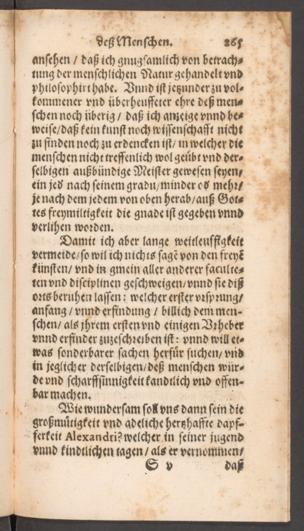 deß Menschen. 265
ansehen / daß ich gnugsamlich von betrach-
tung der menschlichen Natur gehandelt vnd
philosophirt habe. Vnnd ist jetzunder zu vol-
kommener vnd überheuffeter ehre deß men-
schen noch überig / daß ich anzeige vnnd be-
weise / daß kein kunst noch wissenschafft nicht
zu finden noch zu erdencken ist / in welcher die
menschen nicht treffenlich wol geübt vnd der-
selbigen außbündige Meister gewesen seyen /
ein jeð nach seinem gradu / minder oð mehr /
je nach dem jedem von oben herab / auß Got-
tes freymiltigkeit die gnade ist gegeben vnnd
verlihen worden.
Damit ich aber lange weitleufftgkeit
vermeide / so wil ich nichts sagē von den freyē
künsten / vnd in gmein aller anderer faculte-
ten vnd disciplinen geschweigen / vnnd sie diß
orts beruhen lassen : welcher erster vrsprung /
anfang / vnnd erfindung / billich dem men-
schen / als ihrem ersten vnd einigen Vrheber
vnnd erfinder zuzeschreiben ist : vnnd will et-
was sonderbarer sachen herfür suchen / vnd
in jeglicher derselbigen / deß menschen wür-
de vnd scharffsinnigkeit kandtlich vnd offen-
bar machen.
Wie wundersam soll vns dann sein die
großmütigkeit vnd adeliche hertzhaffte dapf-
ferkeit Alexandri? welcher in seiner jugend
vnnd kindtlichen tagen / als er vernommen /
S v daß